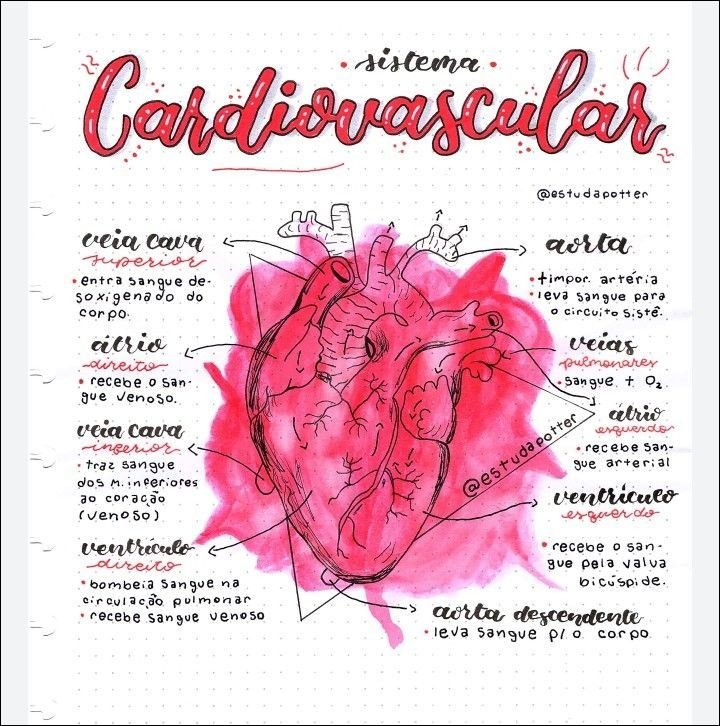 • sistema •
Cardiovascular
@estudapotter
veia cava
superior
• entra sangue de-
soxigenado do
corpo.
átrio
direito
• recebe o san-
gue venoso.
veia cava
inferior
• traz sangue
dos m. inferiores
ao coração
(venoso)
ventrículo
direito
• bombeia sangue na
circulação pulmonar
• recebe sangue venoso
aorta
• +impor. artéria
• leva sangue para
o circuito sistê.
veias
pulmonares
• sangue + O₂
átrio
esquerdo
• recebe san-
gue arterial
@estudapotter
ventrículo
esquerdo
• recebe o san-
gue pela valva
bicúspide.
aorta descendente
• leva sangue p/ o corpo